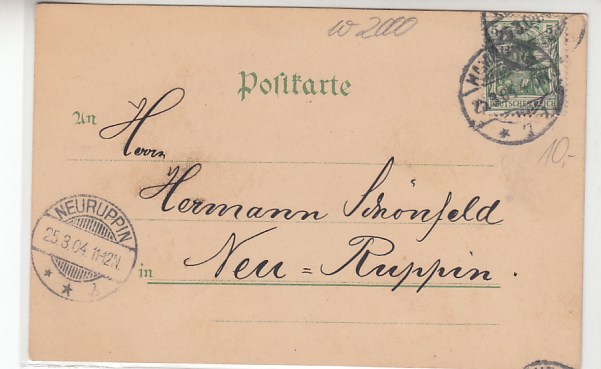 w 2000
5 5
DEUTSCHES REICH
Postkarte
An
Herrn
10,-
Hermann Schönfeld
NEURUPPIN
25.3.04.11-12N.
in Neu=Ruppin.